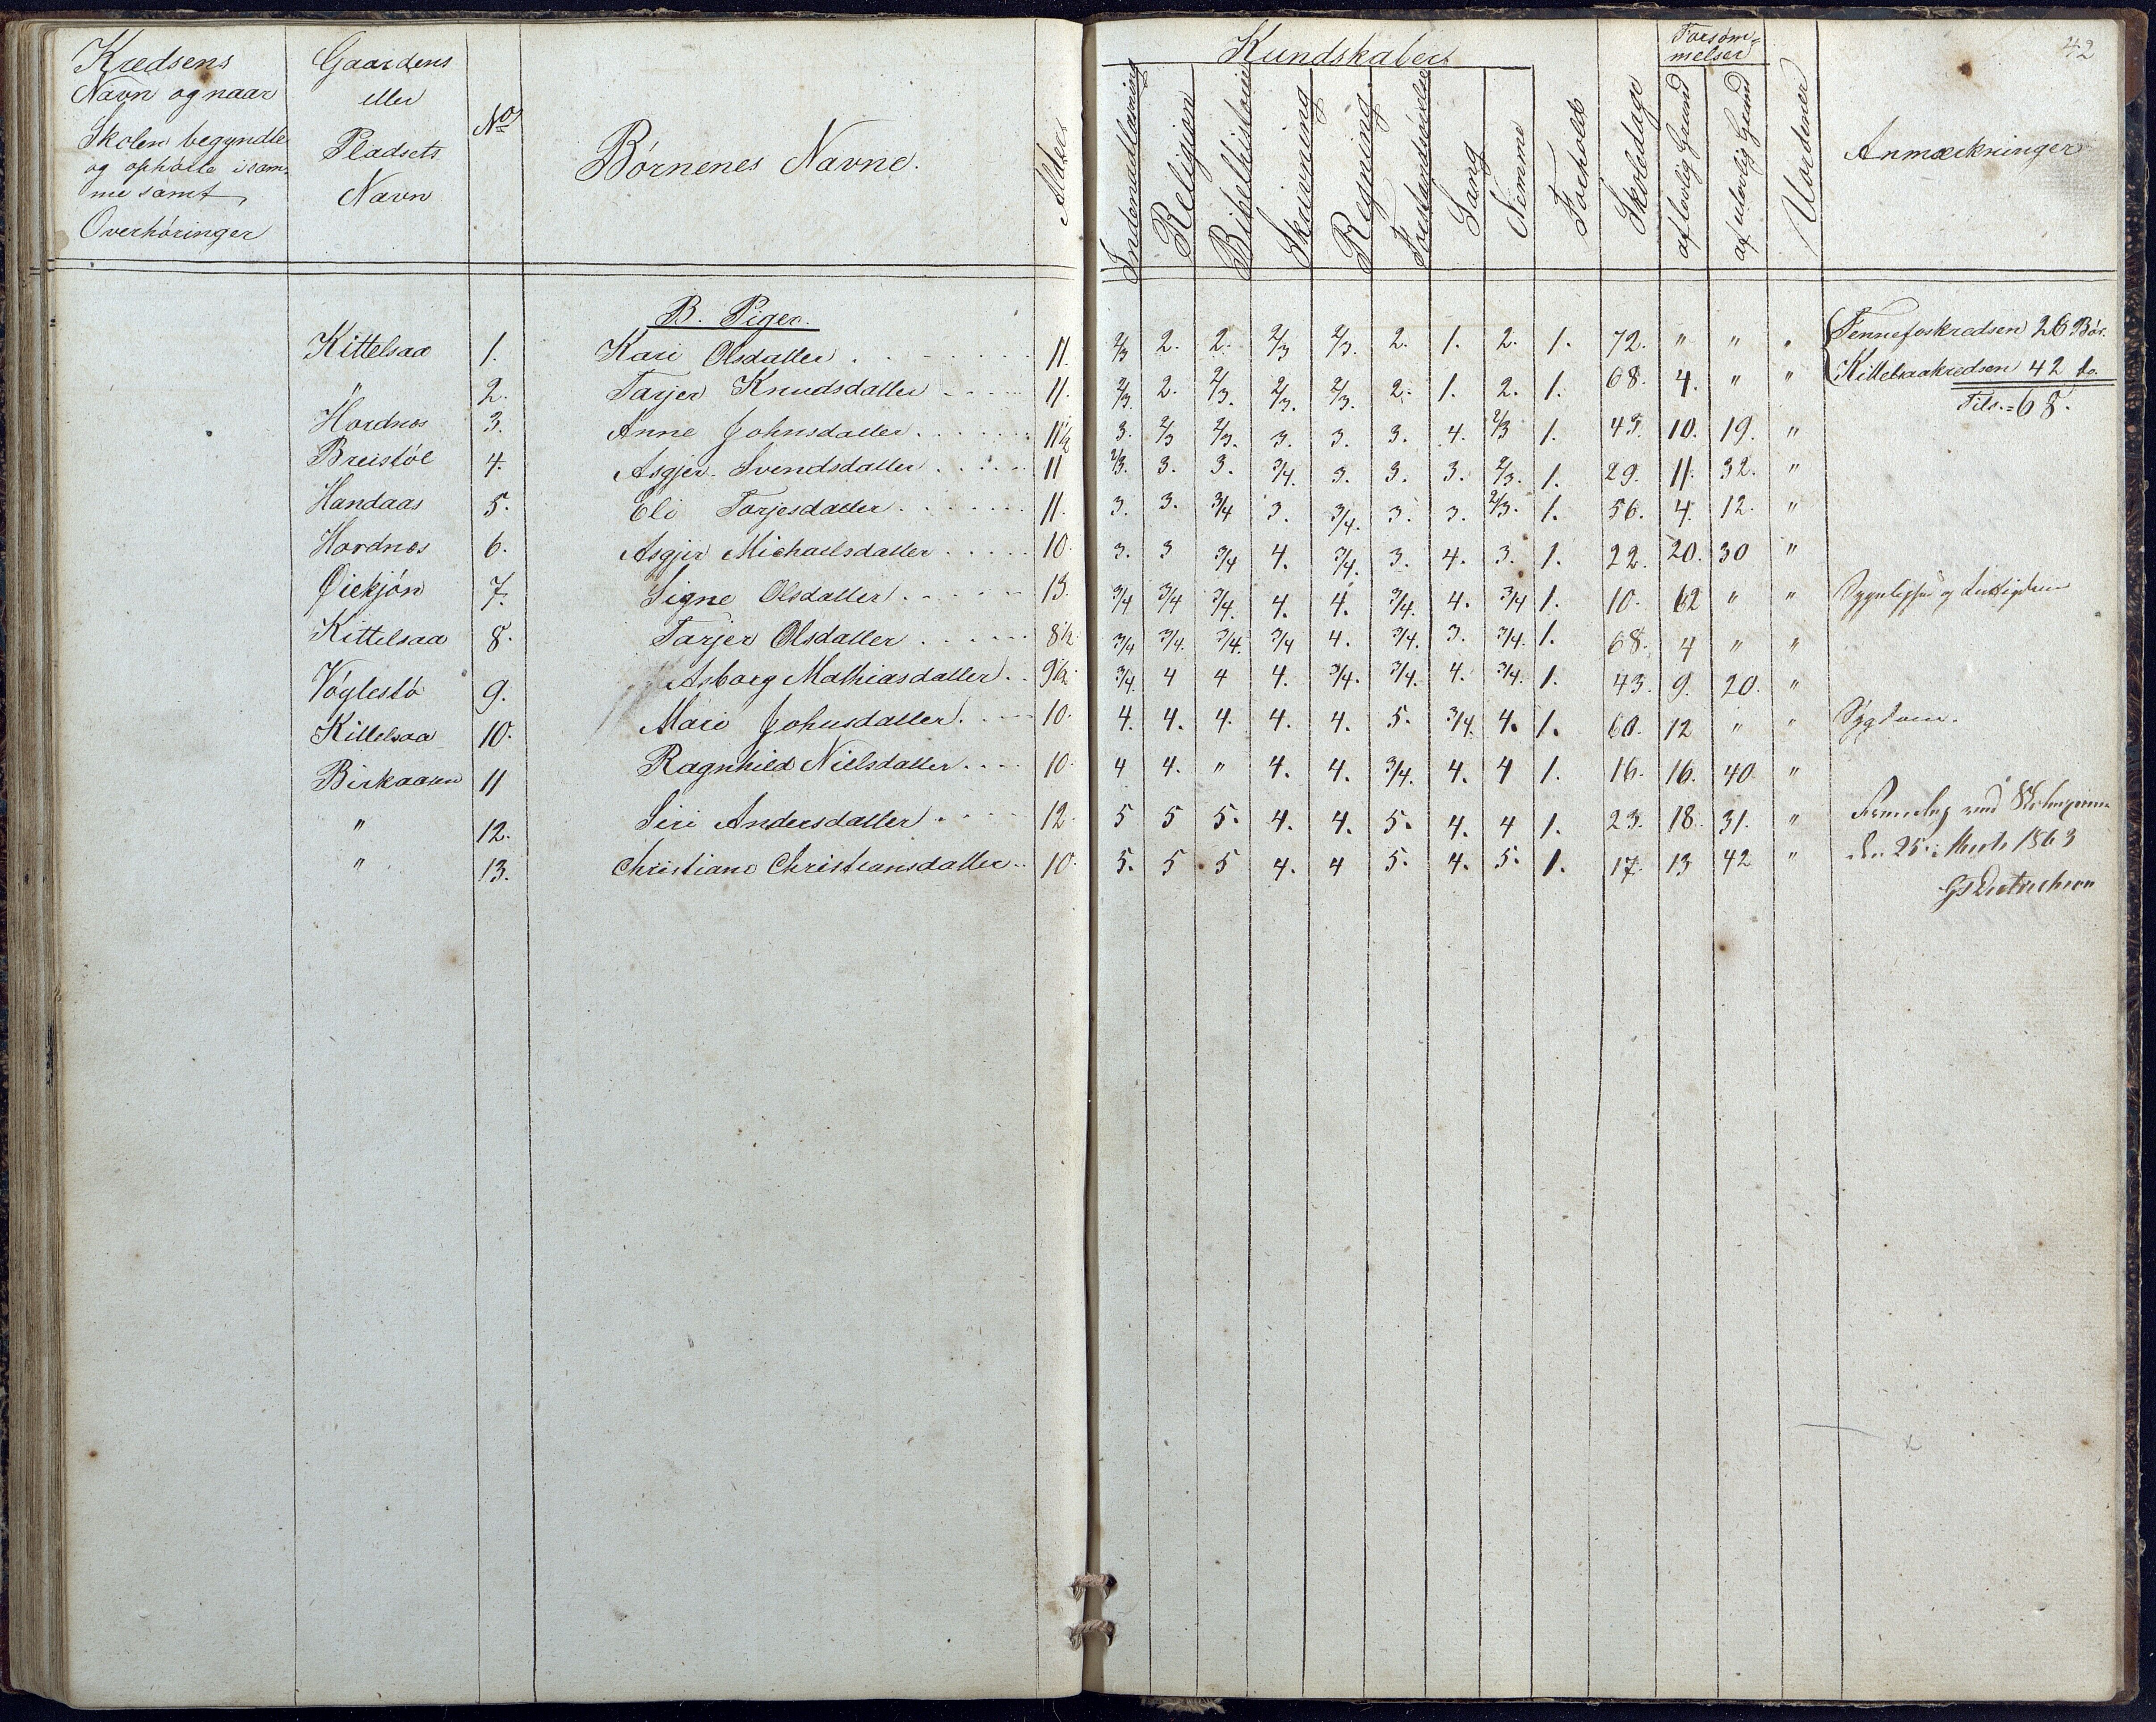 42
Kredsens
Navn og naar
Skolen begyndte
og ophørte i sam-
me samt
Overhøringer
Gaardens
eller
Pladsets
Navn
No
Børnenes Navne.
Alder
Kundskaber
Indenadlæsning
Religion
Bibelhistorie
Skrivning
Regning
Forstandsøvelse
Sang
Nemme
Forhold
Skoledage
Forsøm-
melser
af lovlig Grund
af ulovlig Grund
Uordener
Anmærkninger
B. Piger.
Kittelsaa 1. Kari Olsdatter 11. 2/3 2. 2. 2/3 2/3. 2. 1. 2. 1. 72. " " " Fennefoskredsen 26 Bør.
" 2. Tarjer Knudsdatter 11. 2/3. 2. 2/3. 2/3. 2/3. 2. 1. 2. 1. 68. 4. " " Kittelsaakredsen 42 do.
Tils. = 68.
Hordnes 3. Anne Johnsdatter 11 1/2 3. 2/3 2/3. 3. 3. 3. 4. 2/3 1. 43. 10. 19. "
Breistøl 4. Asgjer Svendsdatter 11 2/3. 3. 3. 3/4. 3. 3. 3. 2/3. 1. 29. 11. 32. "
Handaas 5. Eli Torjesdatter 11. 3. 3. 3/4 3. 3/4. 3. 3. 2/3. 1. 56. 4. 12. "
Hordnes 6. Asgjer Michaelsdatter 10. 3. 3 3/4 4. 3/4. 3. 4. 3. 1. 22. 20. 30 "
Øiekjøn 7. Signe Olsdatter 13. 3/4 3/4 3/4. 4. 4. 3/4. 4. 3/4 1. 10. 62 " " Sygelighed og
Kittelsaa 8. Tarjer Olsdatter 8 1/2 3/4 3/4. 3/4. 3/4 4. 3/4. 3. 3/4. 1. 68. 4 " "
Vøglestø 9. Asborg Mathiasdatter 9 1/2. 3/4. 4 4 4. 3/4. 3/4. 4. 3/4. 1. 43. 9. 20. "
Kittelsaa 10. Mari Johnsdatter 10. 4. 4. 4. 4. 4. 5. 3/4. 4. 1. 60. 12 " " Sygdom.
Birkaasen 11 Ragnhild Nielsdatter 10. 4 4. " 4. 4. 3/4. 4. 4 1. 16. 16. 40. "
" 12. Siri Andersdatter 12. 5 5 5. 4. 4. 5. 4. 4 1. 23. 18. 31. " Fremlagt ved
" 13. Christiane Christiansdatter 10. 5. 5 5 4. 4 5. 4. 5. 1. 17. 13 42 " den 25. Marts 1863